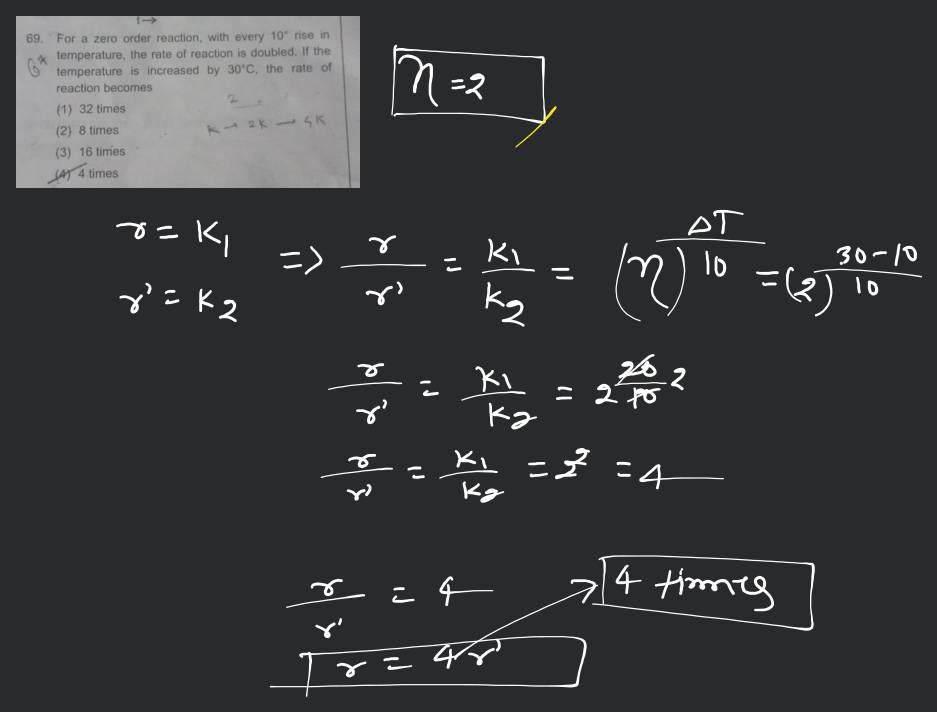 69. For a zero order reaction, with every 10° rise in
temperature, the rate of reaction is doubled. If the
temperature is increased by 30°C, the rate of
reaction becomes
(1) 32 times
(2) 8 times
(3) 16 times
(4) 4 times
2
K → 2K → 4K
n = 2
r = K₁
r' = K₂
=> r/r' = K₁/K₂ = (n)^(ΔT/10) = (2)^((30-10)/10)
r/r' = K₁/K₂ = 2^(20/10) 2
r/r' = K₁/K₂ = 2² = 4
r/r' = 4
4 times
r = 4r'